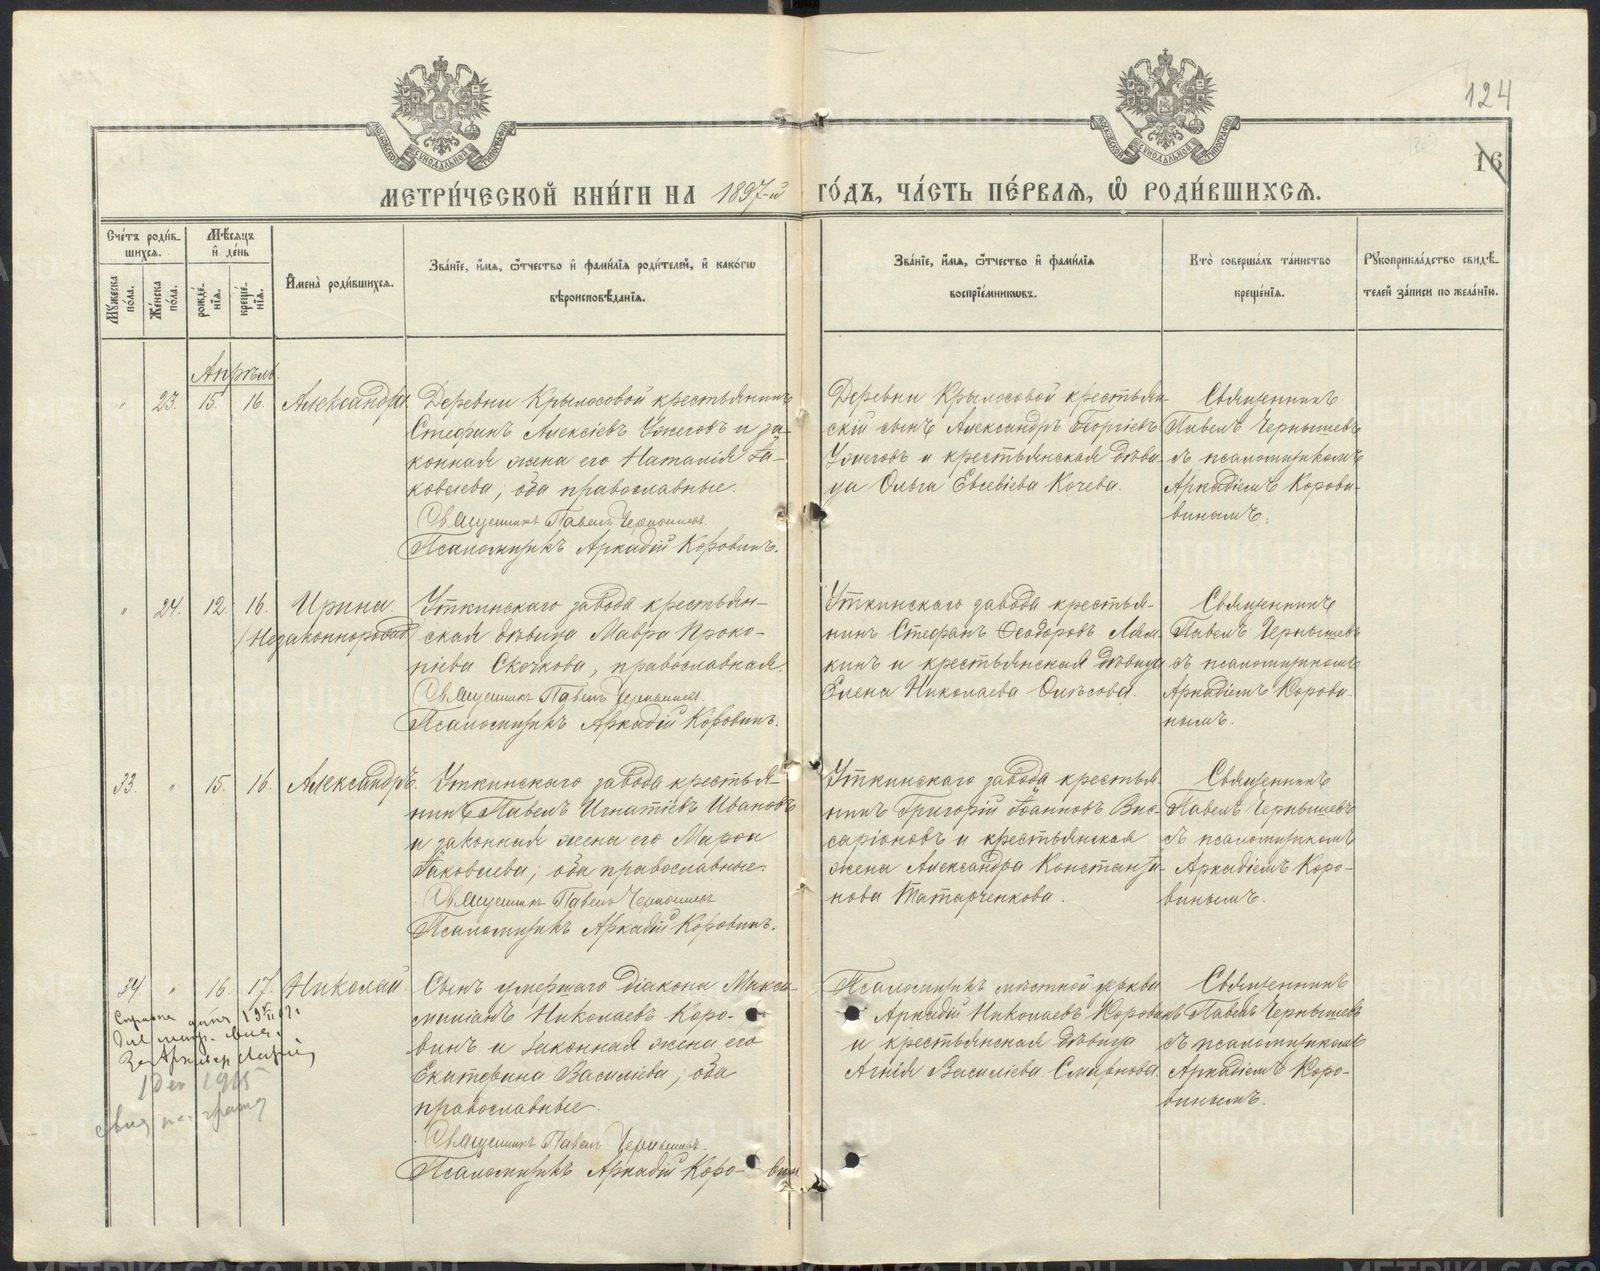 124
16
МЕТРИ́ЧЕСКОЙ КНИ́ГИ НА 1897-й ГО́ДЪ, ЧА́СТЬ ПЕ́РВАЯ, Ѡ РОДИ́ВШИХСЯ.
Сче́тъ роди́в-
шихся.
Мѣ́сяцъ
и де́нь
Му́жеска по́ла.
Же́нска по́ла.
рожде́-
нія.
креще́-
нія.
Имена̀ роди́вшихся.
Зва́ніе, и́мя, ѻ́тчество и фами́лія роди́телей, и како́гѡ
вѣроисповѣ́данія.
Зва́ніе, и́мя, ѻ́тчество и фами́лія
воспріе́мниковъ.
Кто̀ соверша́лъ та́инство
креще́нія.
Рукоприкла́дство свидѣ́-
телей за́писи по жела́нію.
Апрѣль
" 23. 15. 16. Александра
Деревни Крылосовой крестьянинъ
Стефанъ Алексіевъ Ужеговъ и за-
конная жена его Наталія Іа-
ковлева, оба православные.
Священникъ Павелъ Чернышевъ.
Псаломщикъ Аркадій Коровинъ.
Деревни Крылосовой крестьян-
скій сынъ Александръ Георгіевъ
Ужеговъ и крестьянская дѣви-
ца Ольга Евсевіева Кочева.
Священникъ
Павелъ Чернышевъ
съ псаломщикомъ
Аркадіемъ Коро-
винымъ.
" 24. 12. 16. Ирина.
(Незаконнорожд.)
Уткинскаго завода крестьян-
ская дѣвица Мавра Проко-
піева Скочкова, православная.
Священникъ Павелъ Чернышевъ.
Псаломщикъ Аркадій Коровинъ.
Уткинскаго завода крестья-
нинъ Стефанъ Ѳеодоровъ Лям-
кинъ и крестьянская дѣвица
Елена Николаева Олѣсова.
Священникъ
Павелъ Чернышевъ
съ псаломщикомъ
Аркадіемъ Корови-
нымъ.
33. " 15. 16. Александръ.
Уткинскаго завода крестья-
нинъ Павелъ Игнатіевъ Ивановъ
и законная жена его Марѳа
Іаковлева, оба православные.
Священникъ Павелъ Чернышевъ
Псаломщикъ Аркадій Коровинъ.
Уткинскаго завода крестья-
нинъ Григорій Іоанновъ Вис-
саріоновъ и крестьянская
жена Александра Константи-
нова Татарченкова.
Священникъ
Павелъ Чернышевъ
съ псаломщикомъ
Аркадіемъ Коро-
винымъ.
34 " 16. 17. Николай.
Сынъ умершаго діакона Макси-
миліанъ Николаевъ Коро-
винъ и законная жена его
Екатерина Василіева, оба
православные.
Священникъ Павелъ Чернышевъ.
Псаломщикъ Аркадій Коро- винъ
Псаломщикъ мѣстной церкви
Аркадій Николаевъ Коровинъ
и крестьянская дѣвица
Агнія Василіева Смирнова.
Священникъ
Павелъ Чернышевъ
съ псаломщикомъ
Аркадіемъ Коро-
винымъ.
1 Дек 1915